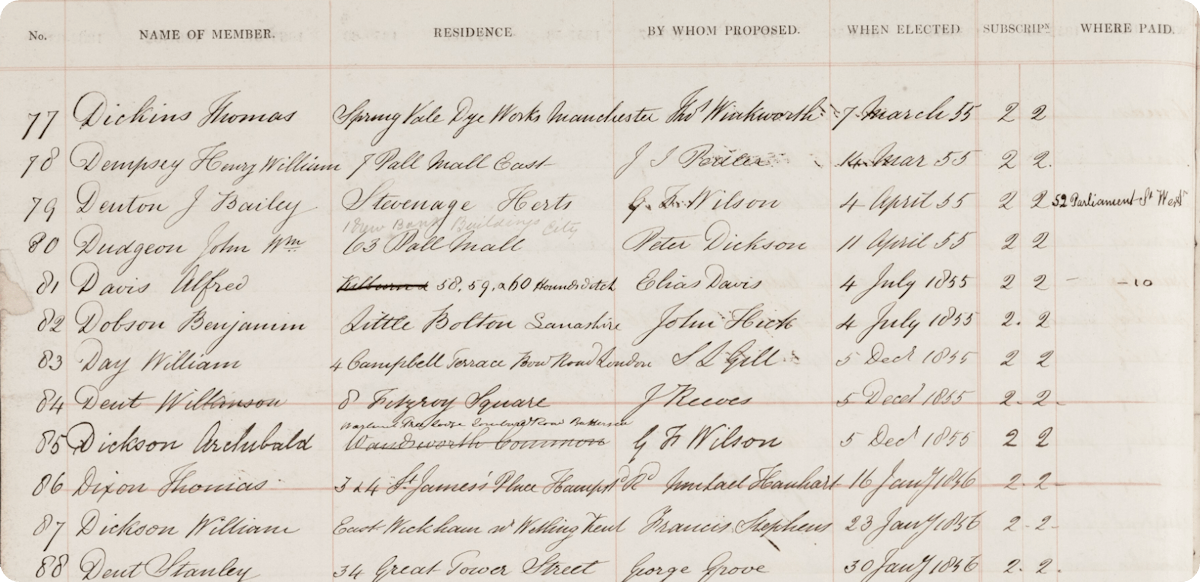 No. NAME OF MEMBER. RESIDENCE BY WHOM PROPOSED. WHEN ELECTED SUBSCRIPN WHERE PAID.
77 Dickins Thomas Spring Vale Dye Works Manchester Thos Winkworth 7 March 55 2 2
78 Dempsey Henry William 7 Pall Mall East J I 14 Mar 55 2 2
79 Denton J Bailey Stevenage Herts G. F. Wilson 4 April 55 2 2 52 Parliament St Westr
1 New Bank Buildings City
80 Dudgeon John Wm 63 Pall Mall Peter Dickson 11 April 55 2 2
81 Davis Alfred 58, 59, & 60 Houndsditch Elias Davis 4 July 1855 2 2 - -10
82 Dobson Benjamin Little Bolton Lanashire John Hick 4 July 1855 2. 2
83 Day William 4 Campbell Terrace Bow Road London S L Gill 5 Decr 1855 2 2
84 Dent Wilkinson 8 Fitzroy Square J Reeves 5 Decr 1855 2. 2.
85 Dickson Archibald Wandsworth Common G F Wilson 5 Decr 1855 2 2
86 Dixon Thomas 3 & 4 St James's Place Hampstd Rd Michael Hanhart 16 Jany 1856 2. 2
87 Dickson William East Wickham nr Welling Kent Francis Stephens 23 Jany 1856 2. 2.
88 Dent Stanley 34 Great Tower Street George Grove 30 Jany 1856 2. 2.